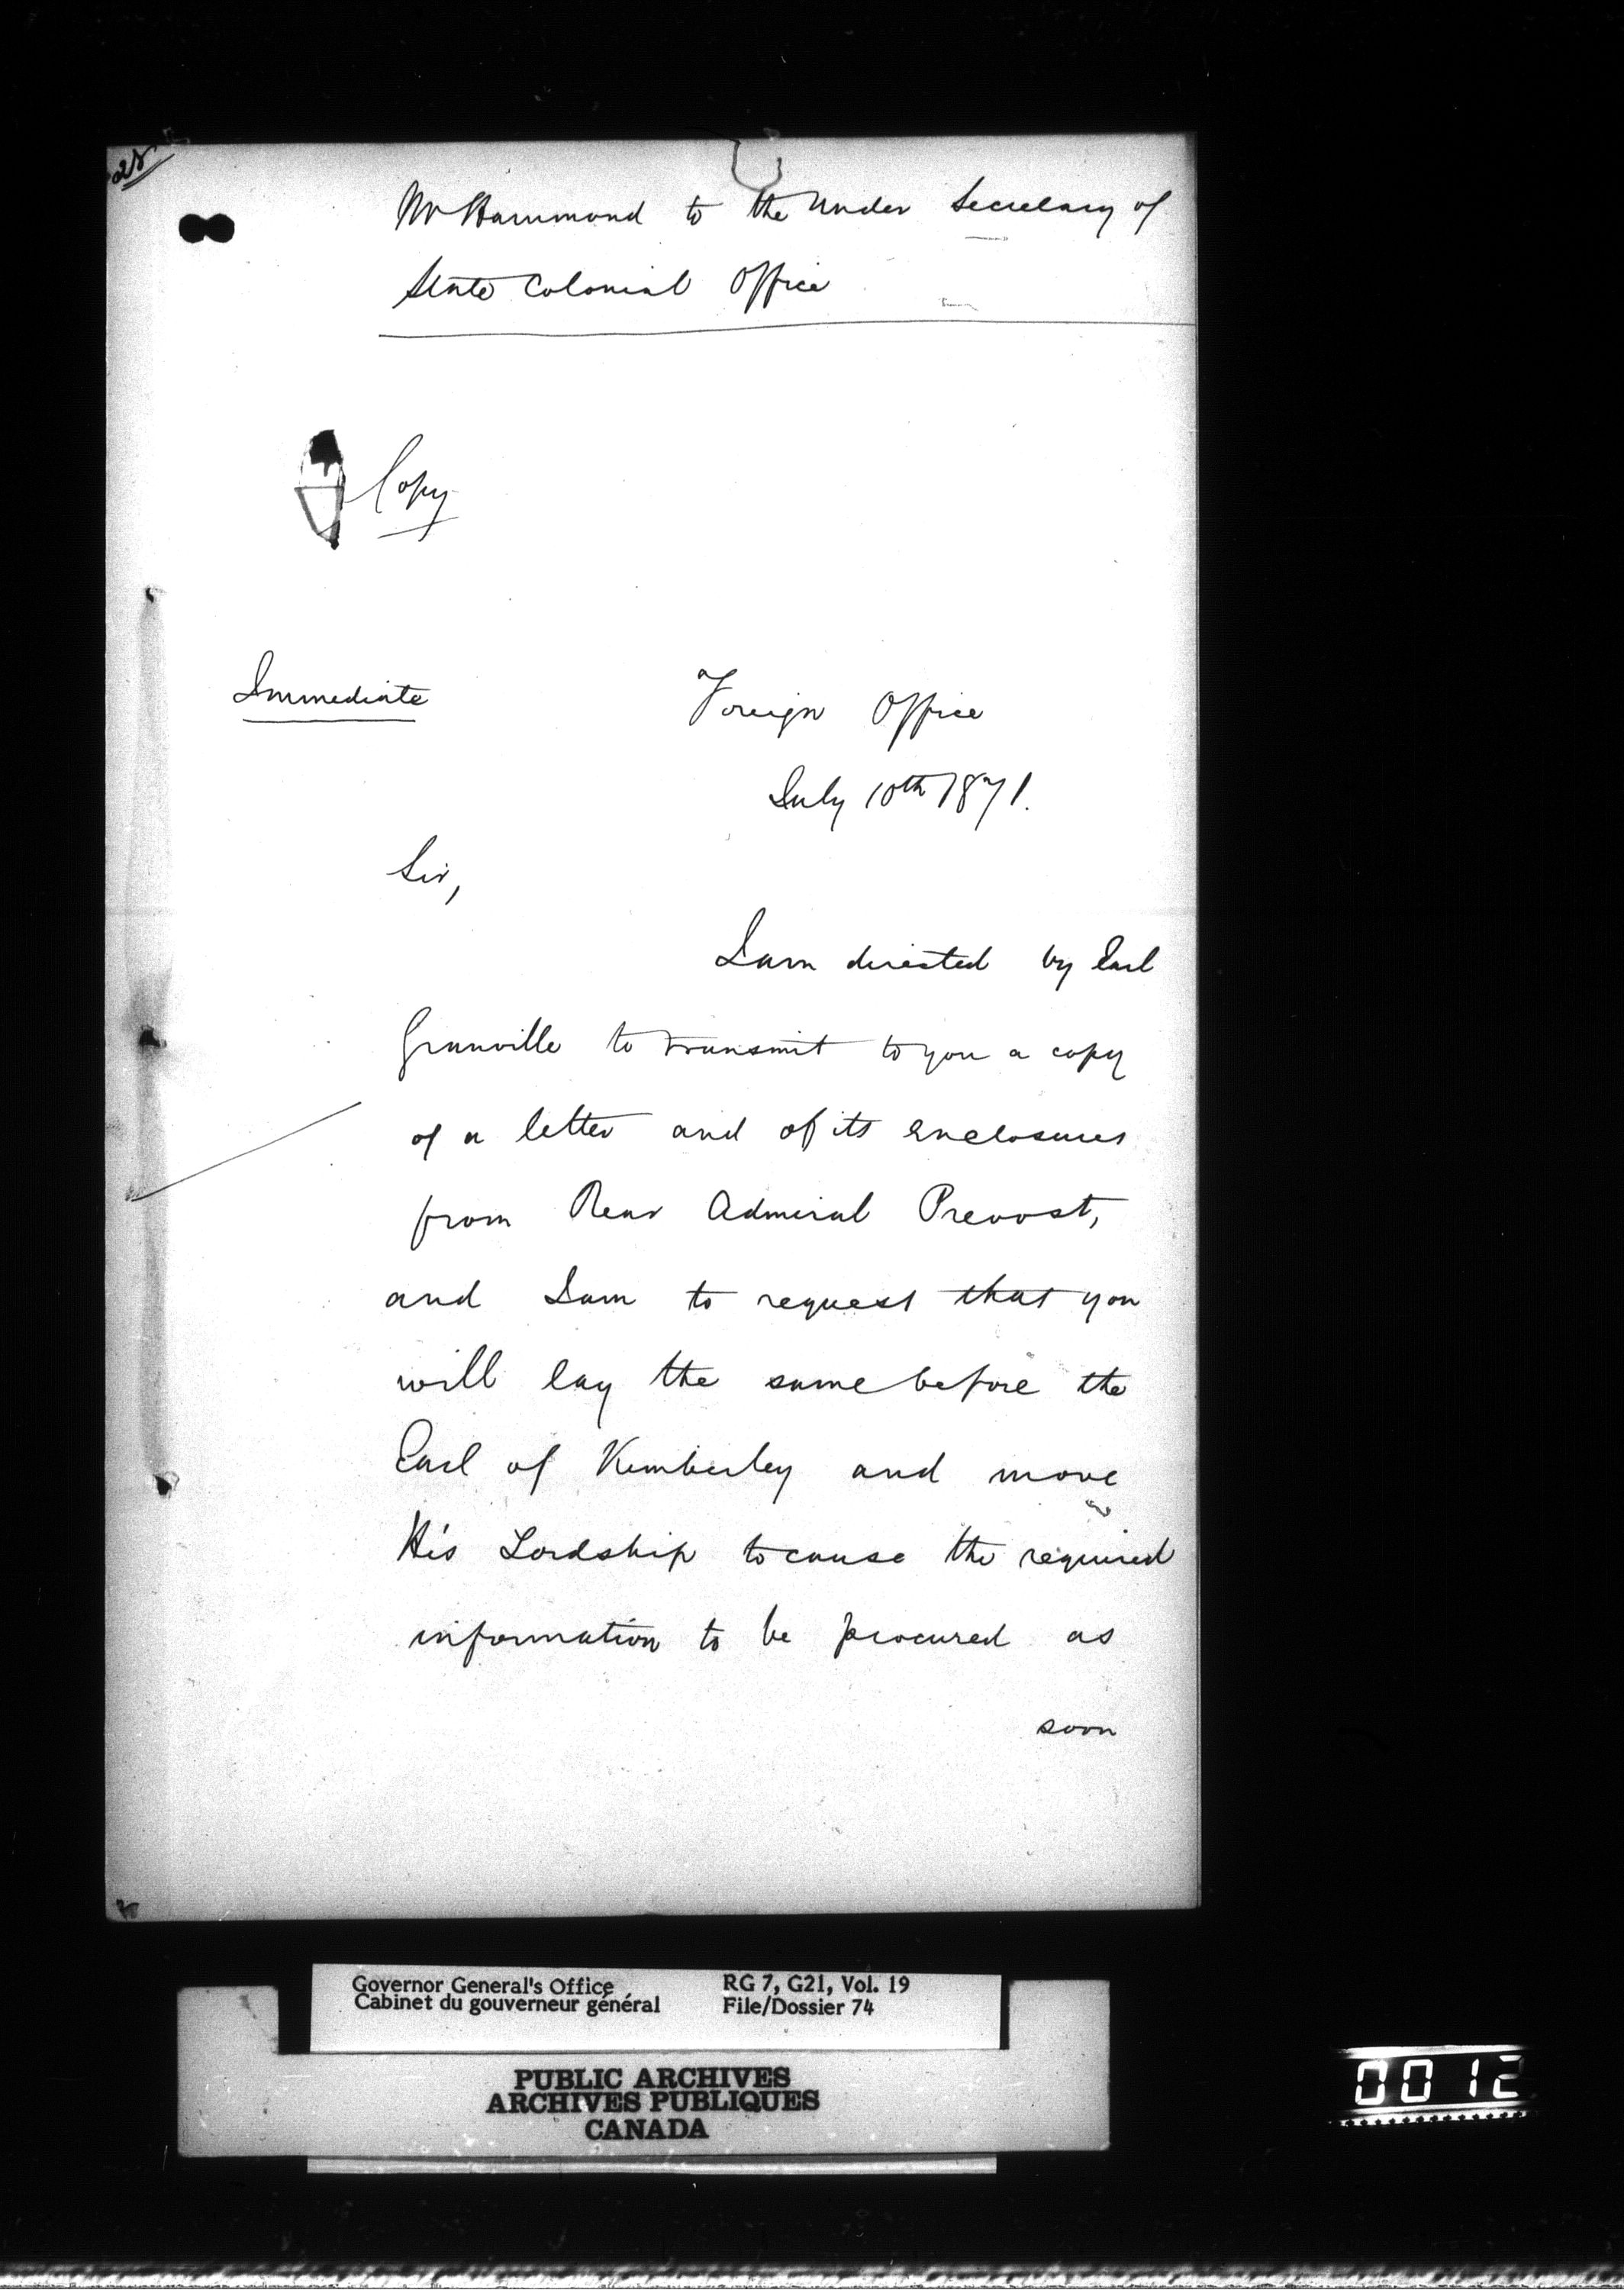 28
Mr Hammond to the Under Secretary of
State Colonial Office
Copy
Immediate
Foreign Office
July 10th 1871.
Sir,
I am directed by Earl
Granville to transmit to you a copy
of a letter and of its enclosures
from Rear Admiral Prevost,
and I am to request that you
will lay the same before the
Earl of Kimberley and move
His Lordship to cause the required
information to be procured as
soon
Governor General's Office
Cabinet du gouverneur général
RG 7, G21, Vol. 19
File/Dossier 74
PUBLIC ARCHIVES
ARCHIVES PUBLIQUES
CANADA
0012